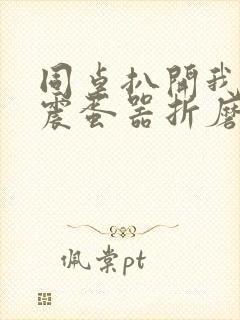 同桌扒開我
震蛋器折磨
佩棠pt